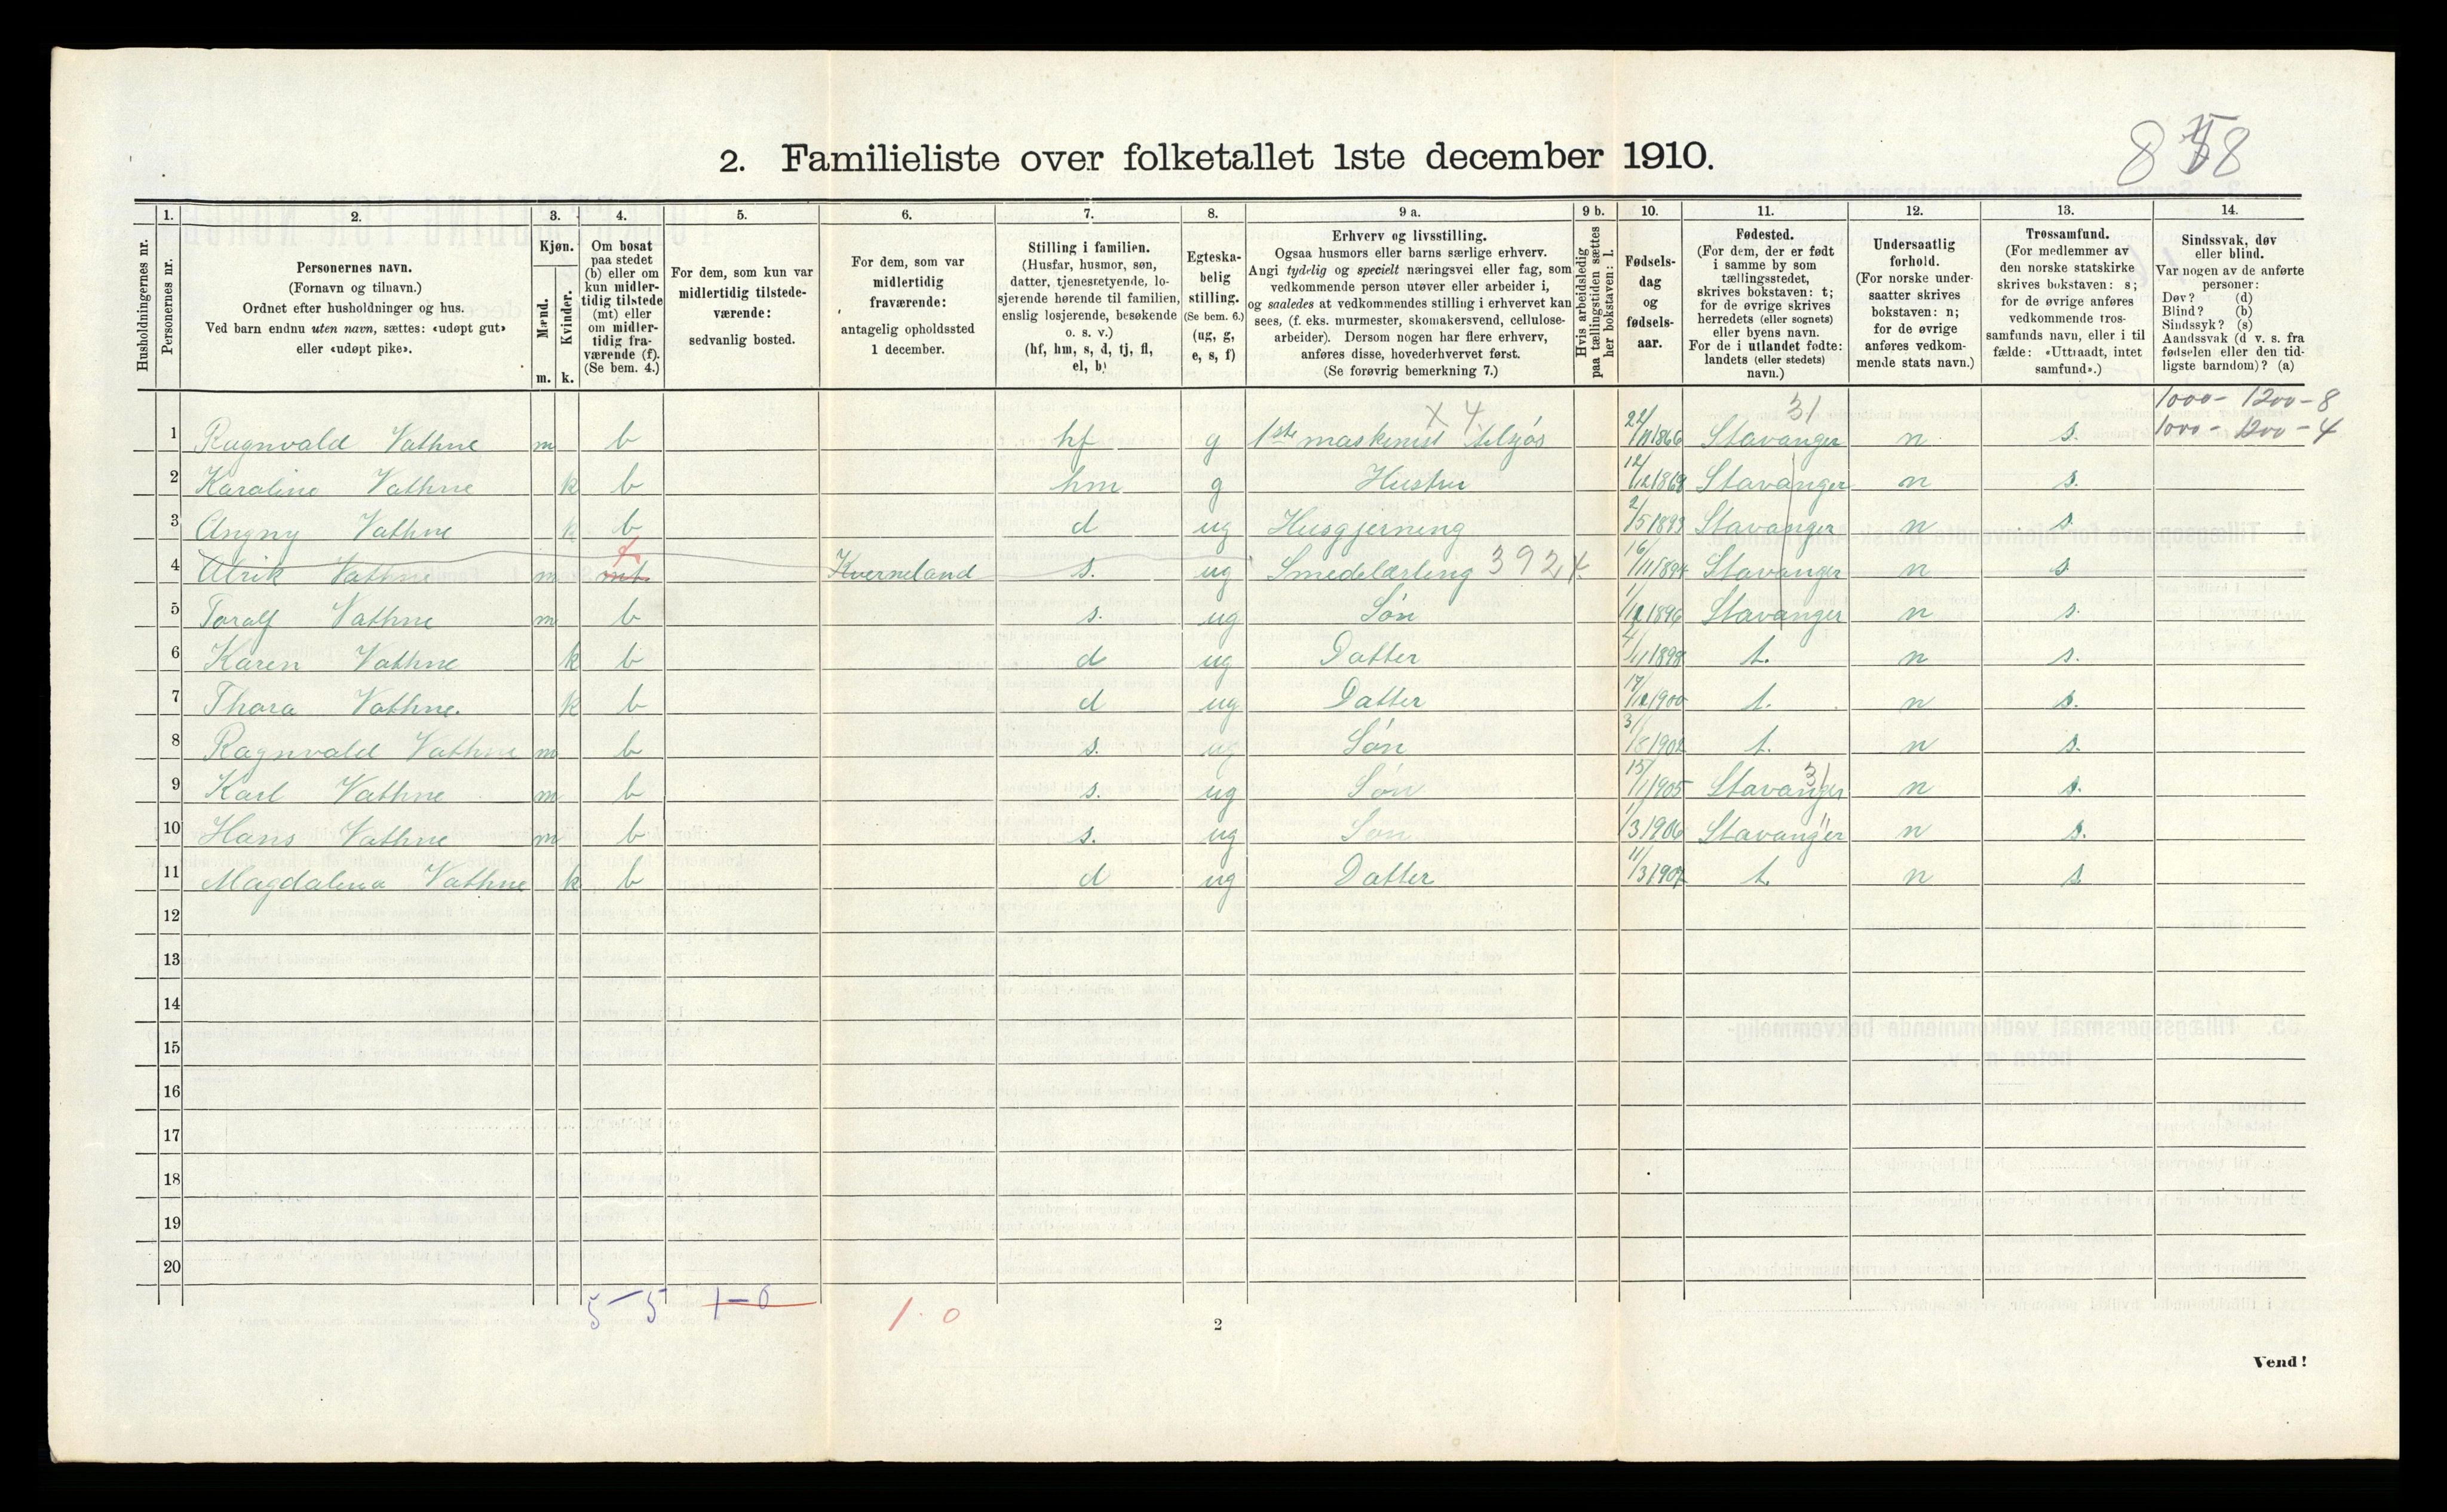 858
2. Familieliste over folketallet 1ste december 1910.
1. 2. 3. 4. 5. 6. 7. 8. 9 a. 9 b. 10. 11. 12. 13. 14.
Husholdningernes nr.
Personernes nr.
Personernes navn.
(Fornavn og tilnavn.)
Ordnet efter husholdninger og hus.
Ved barn endnu uten navn, sættes: «udøpt gut»
eller «udøpt pike».
Kjøn.
Mænd.
Kvinder.
m. k.
Om bosat
paa stedet
(b) eller om
kun midler-
tidig tilstede
(mt) eller
om midler-
tidig fra-
værende (f).
(Se bem. 4.)
For dem, som kun var
midlertidig tilstede-
værende:
sedvanlig bosted.
For dem, som var
midlertidig
fraværende:
antagelig opholdssted
1 december.
Stilling i familien.
(Husfar, husmor, søn,
datter, tjenestetyende, lo-
sjerende hørende til familien,
enslig losjerende, besøkende
o. s. v.)
(hf, hm, s, d, tj, fl,
el, b)
Egteska-
belig
stilling.
(Se bem. 6.)
(ug, g,
e, s, f)
Erhverv og livsstilling.
Ogsaa husmors eller barns særlige erhverv.
Angi tydelig og specielt næringsvei eller fag, som
vedkommende person utøver eller arbeider i,
og saaledes at vedkommendes stilling i erhvervet kan
sees, (f. eks. murmester, skomakersvend, cellulose-
arbeider). Dersom nogen har flere erhverv,
anføres disse, hovederhvervet først.
(Se forøvrig bemerkning 7.)
Hvis arbeidsledig
paa tællingstiden sættes
her bokstaven: l.
Fødsels-
dag
og
fødsels-
aar.
Fødested.
(For dem, der er født
i samme by som
tællingsstedet,
skrives bokstaven: t;
for de øvrige skrives
herredets (eller sognets)
eller byens navn.
For de i utlandet fødte:
landets (eller stedets)
navn.)
Undersaatlig
forhold.
(For norske under-
saatter skrives
bokstaven: n;
for de øvrige
anføres vedkom-
mende stats navn.)
Trossamfund.
(For medlemmer av
den norske statskirke
skrives bokstaven: s;
for de øvrige anføres
vedkommende tros-
samfunds navn, eller i til
fælde: «Uttraadt, intet
samfund».)
Sindssvak, døv
eller blind.
Var nogen av de anførte
personer:
Døv? (d)
Blind? (b)
Sindssyk? (s)
Aandssvak (d v. s. fra
fødselen eller den tid-
ligste barndom)? (a)
x 4 31 1000 - 1200 - 8
1 Ragnvald Vathne m b hf g 1ste maskinist tilsjøs 22/11 1866 Stavanger n s. 1000 - 1200 - 4
2 Karoline Vathne k b hm g Hustru 12/12 1868 Stavanger n s.
3 Angny Vathne k b d ug Husgjerning 2/5 1893 Stavanger n s
4 Alrik Vathne m mt f Kverneland s. ug Smedelærling 3924 16/11 1894 Stavanger n s
5 Toralf Vathne m b s. ug Søn 1/12 1896 Stavanger n s.
6 Karen Vathne k b d ug Datter 4/11 1898 t. n s.
7 Thora Vathne. k b d ug Datter 17/12 1900 t. n s.
8 Ragnvald Vathne m b s. ug Søn 3/8 1902 t. n s.
9 Karl Vathne m b s. ug Søn 15/1 1905 Stavanger 31 n s.
10 Hans Vathne m b s. ug Søn 1/3 1906 Stavanger " n s.
11 Magdalena Vathne k b d ug Datter 11/3 1907 t. n s
12
13
14
15
16
17
18
19
20
5 - 5 1 - 0 1 . 0
2
Vend!